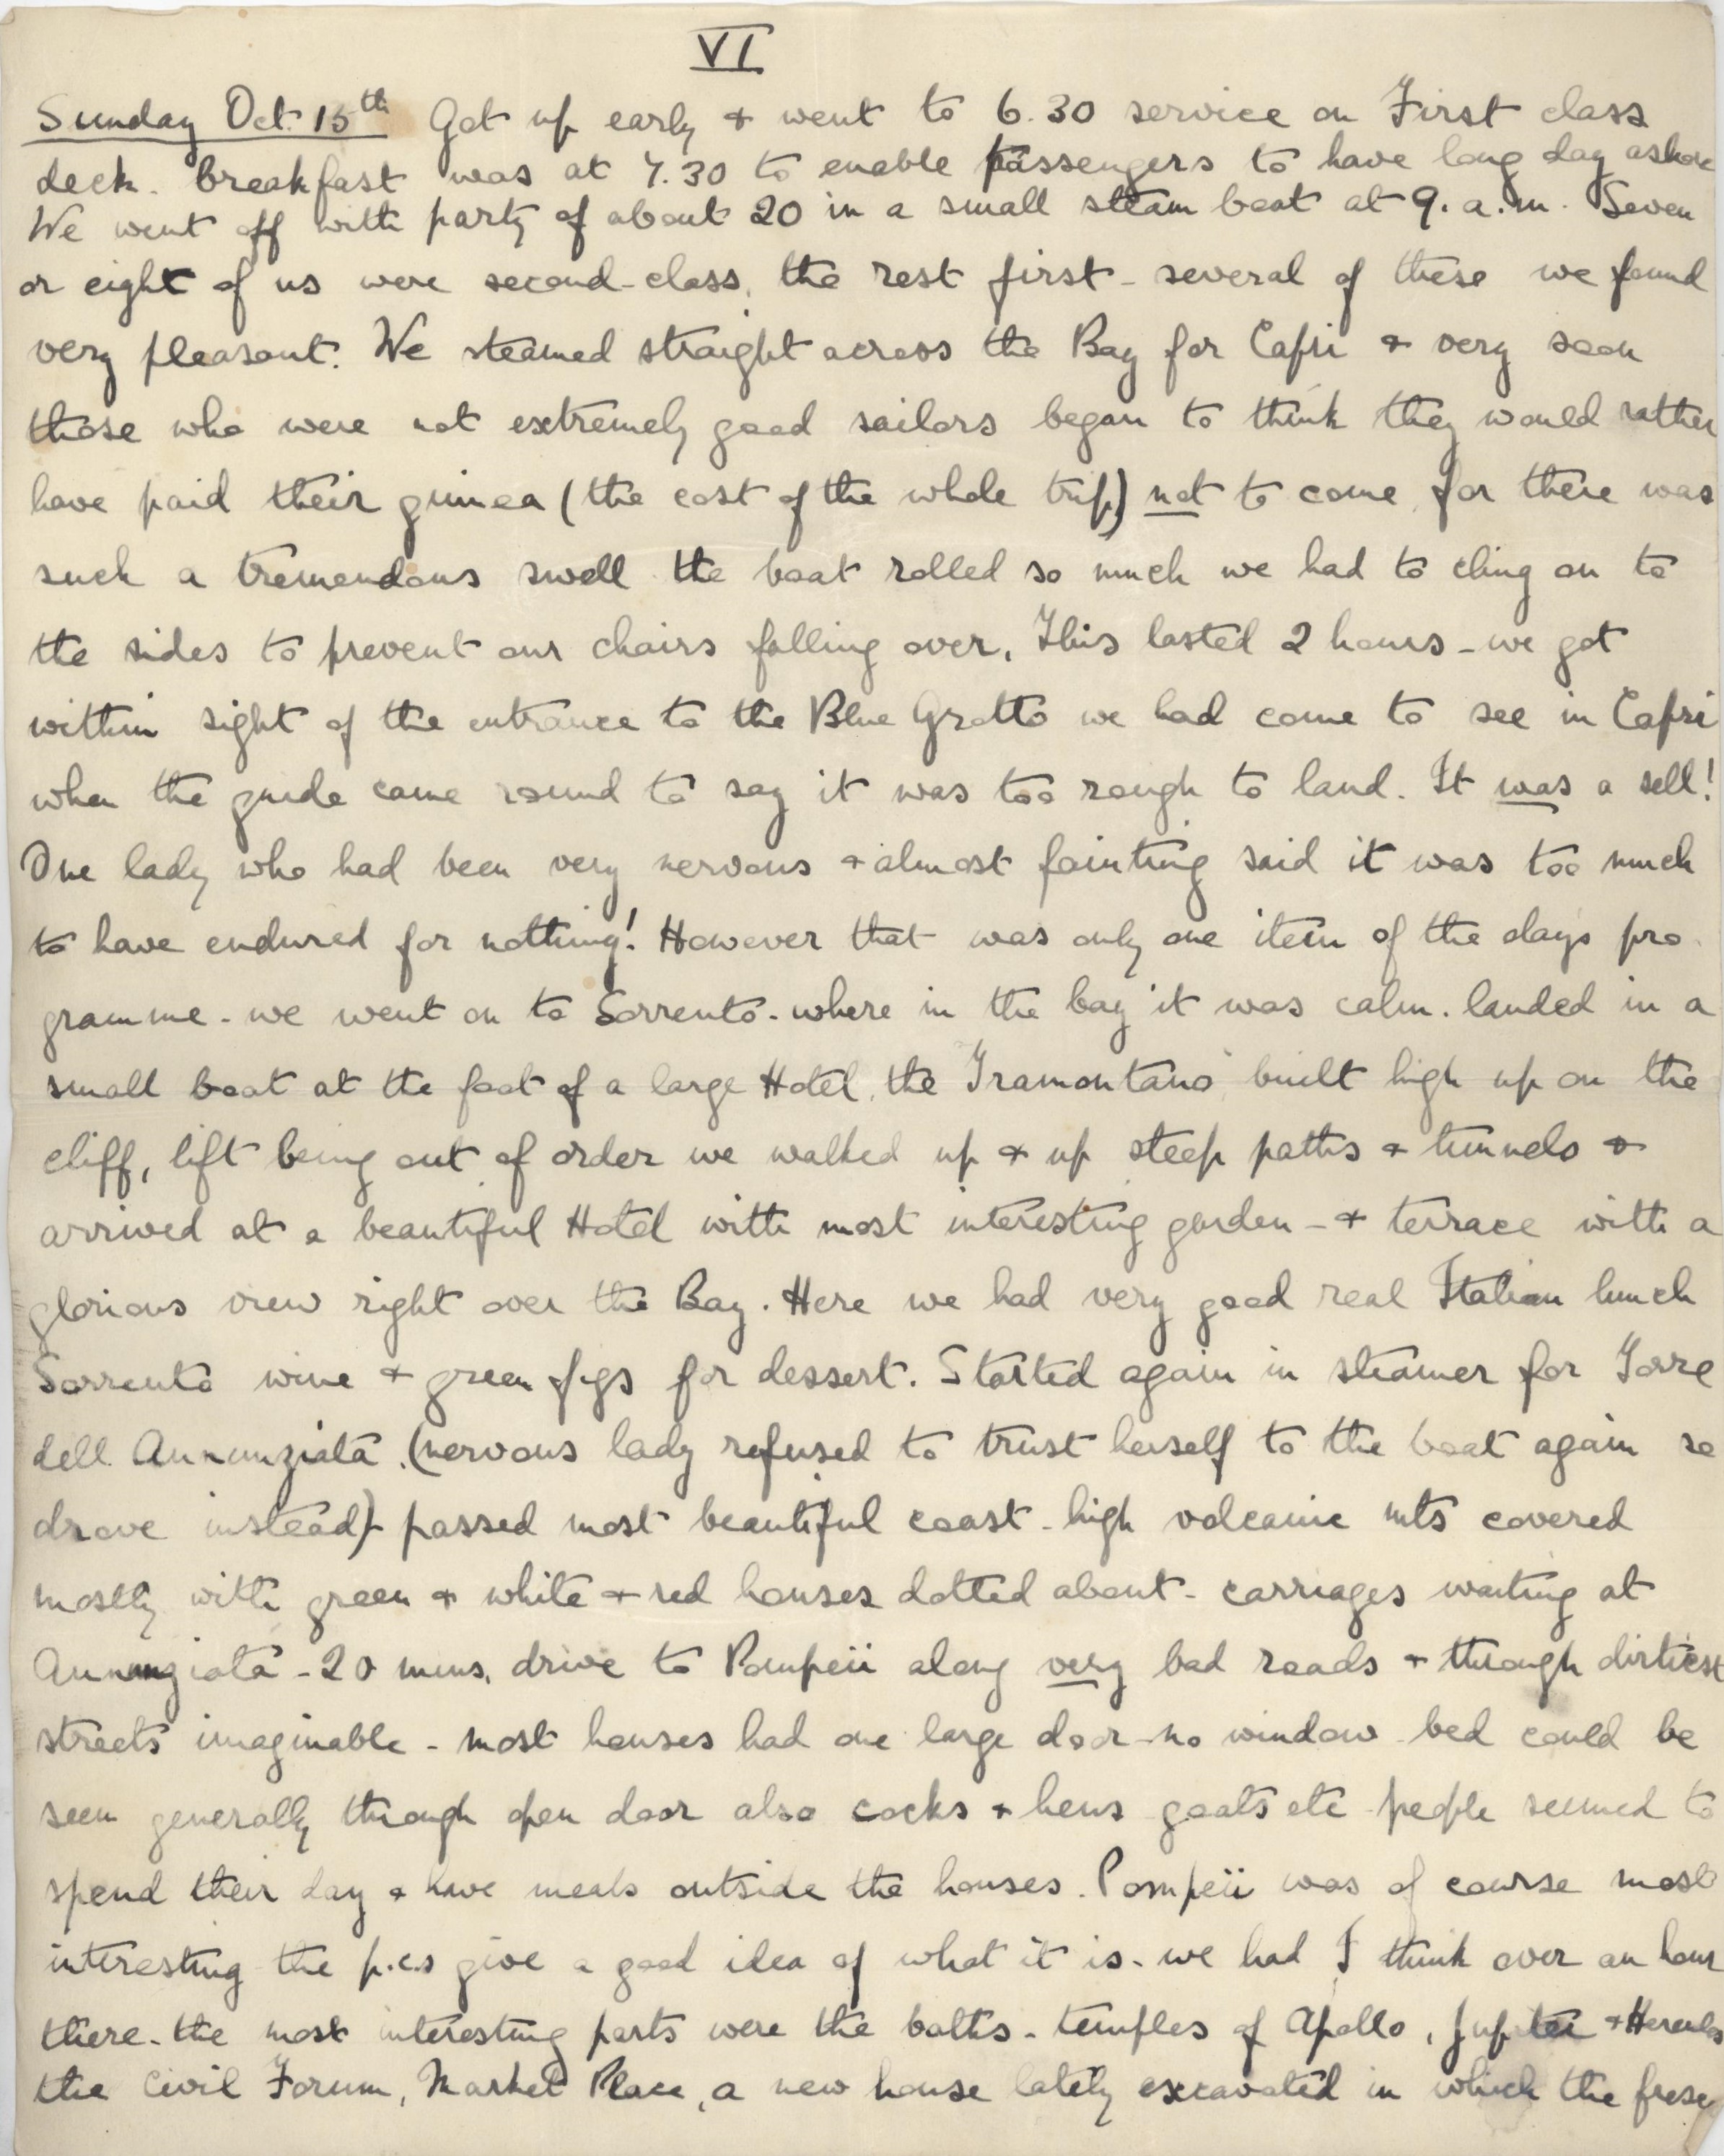 VI
Sunday Oct. 15th Got up early & went to 6.30 service on First class
deck. Breakfast was at 7.30 to enable passengers to have long day ashore
We went off with party of about 20 in a small steam boat at 9. a.m. Seven
or eight of us were second-class, the rest first - several of these we found
very pleasant. We steamed straight across the Bay for Capri & very soon
those who were not extremely good sailors began to think they would rather
have paid their guinea (the cost of the whole trip) not to come for there was
such a tremendous swell the boat rolled so much we had to cling on to
the sides to prevent our chairs falling over. This lasted 2 hours - we got
within sight of the entrance to the Blue Grotto we had come to see in Capri
when the guide came round to say it was too rough to land. It was a sell!
One lady who had been very nervous & almost fainting said it was too much
to have endured for nothing! However that was only one item of the days pro-
gramme - we went on to Sorrento - where in the bay it was calm. landed in a
small boat at the foot of a large Hotel, the Tramontano built high up on the
cliff, lift being out of order we walked up & up steep paths & tunnels &
arrived at a beautiful Hotel with most interesting garden - & terrace with a
glorious view right over the Bay. Here we had very good real Italian lunch
Sorrento wine & green figs for dessert. Started again in steamer for Torre
dell Annunziata (nervous lady refused to trust herself to the boat again so
drove instead) passed most beautiful coast - high volcanic mts covered
mostly with green & white & red houses dotted about - carriages waiting at
Annunziata - 20 mins. drive to Pompeii along very bad roads & through dirtiest
streets imaginable - most houses had one large door - no window - bed could be
seen generally through open door also cocks & hens goats etc - people seemed to
spend their day & have meals outside the houses. Pompeii was of course most
interesting the p.c.s give a good idea of what it is - we had I think over an hour
there - the most interesting parts were the baths - temples of Apollo, Jupiter & Hercules
the Civil Forum, Market Place, a new house lately excavated in which the fresc